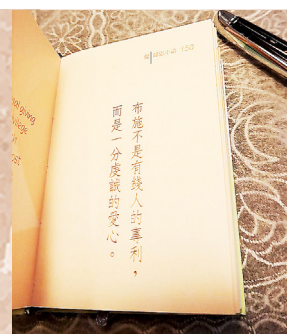 150
布施不是有錢人的專利，
而是一分虔誠的愛心。
giving